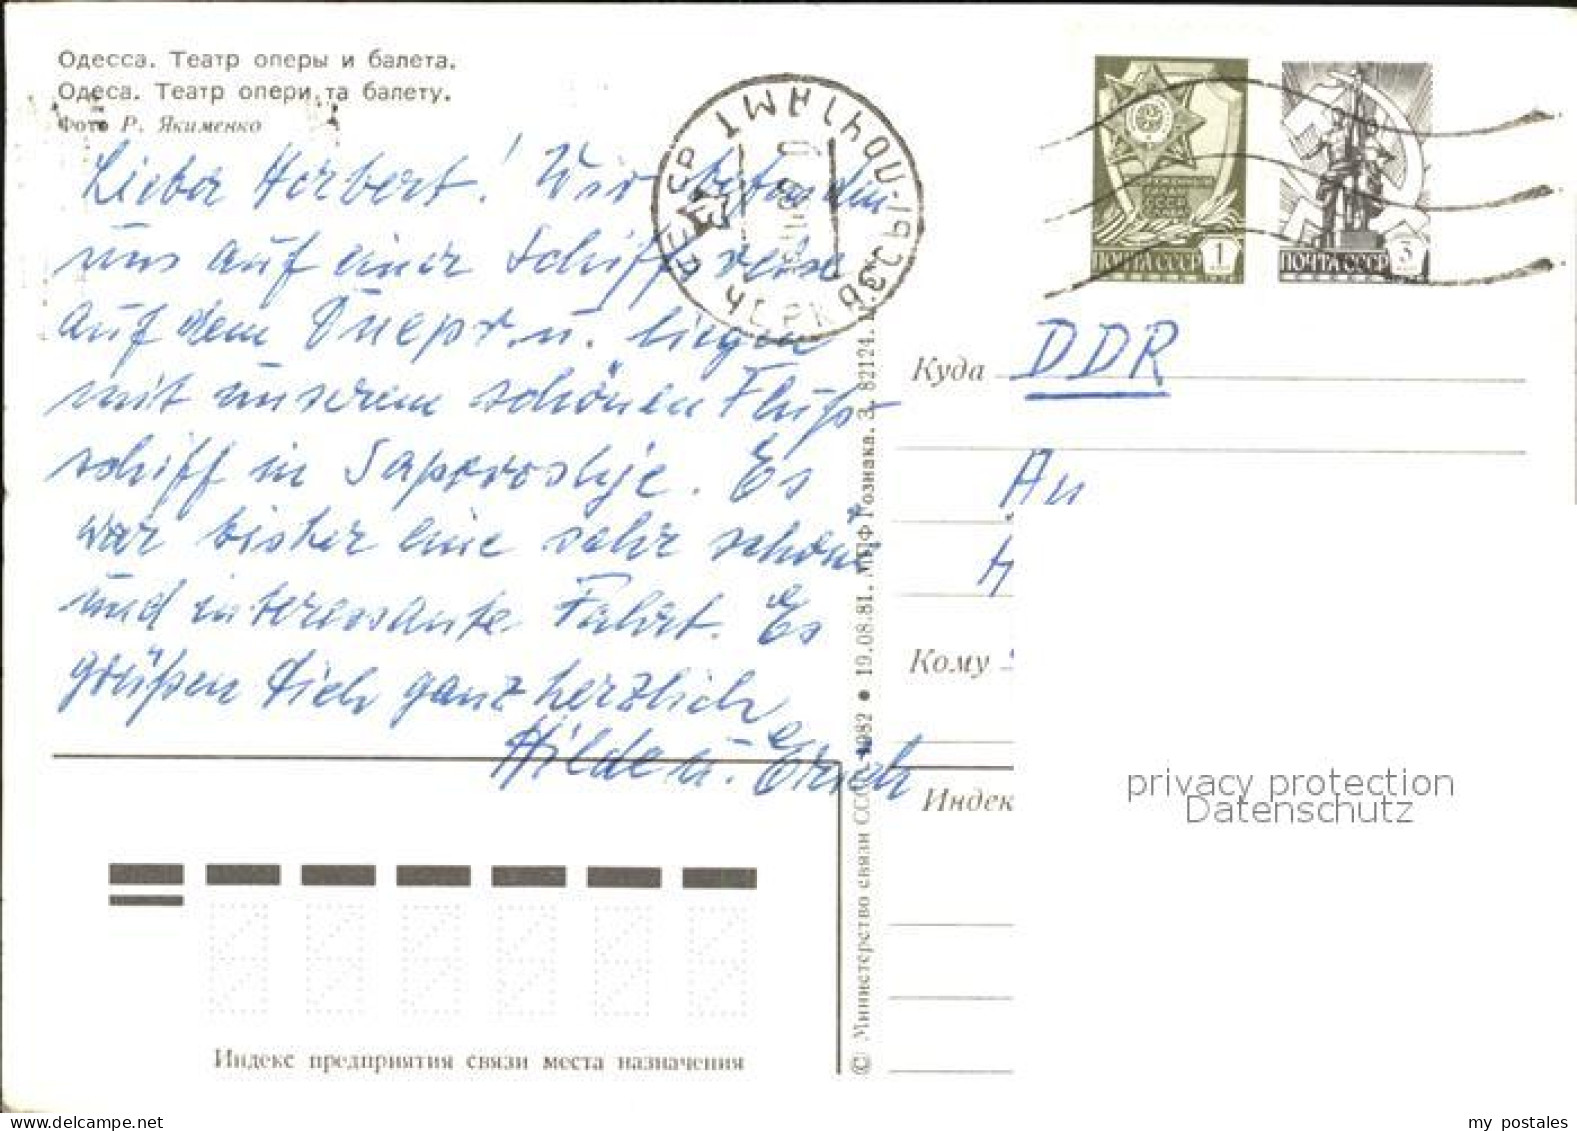 Одесса. Театр оперы и балета.
Одеса. Театр опери та балету.
Фото Р. Якименко
Lieber Herbert! Wir befinden
uns auf einer Schiffreise
auf dem Dnepr u. liegen
mit unserem schönen Fluß-
schiff in Saporoshje. Es
war bisher eine sehr schöne
und interessante Fahrt. Es
grüßen Dich ganz herzlich
Hilde u. Erich
Индекс предприятия связи места назначения
© Министерство связи СССР. 1982 ● 19.08.81. МПФ Гознака. З. 82124.
ПОЧТА СССР 1
ПОЧТА СССР 3
Куда DDR
An
Кому
Индек
privacy protection
Datenschutz
my postales